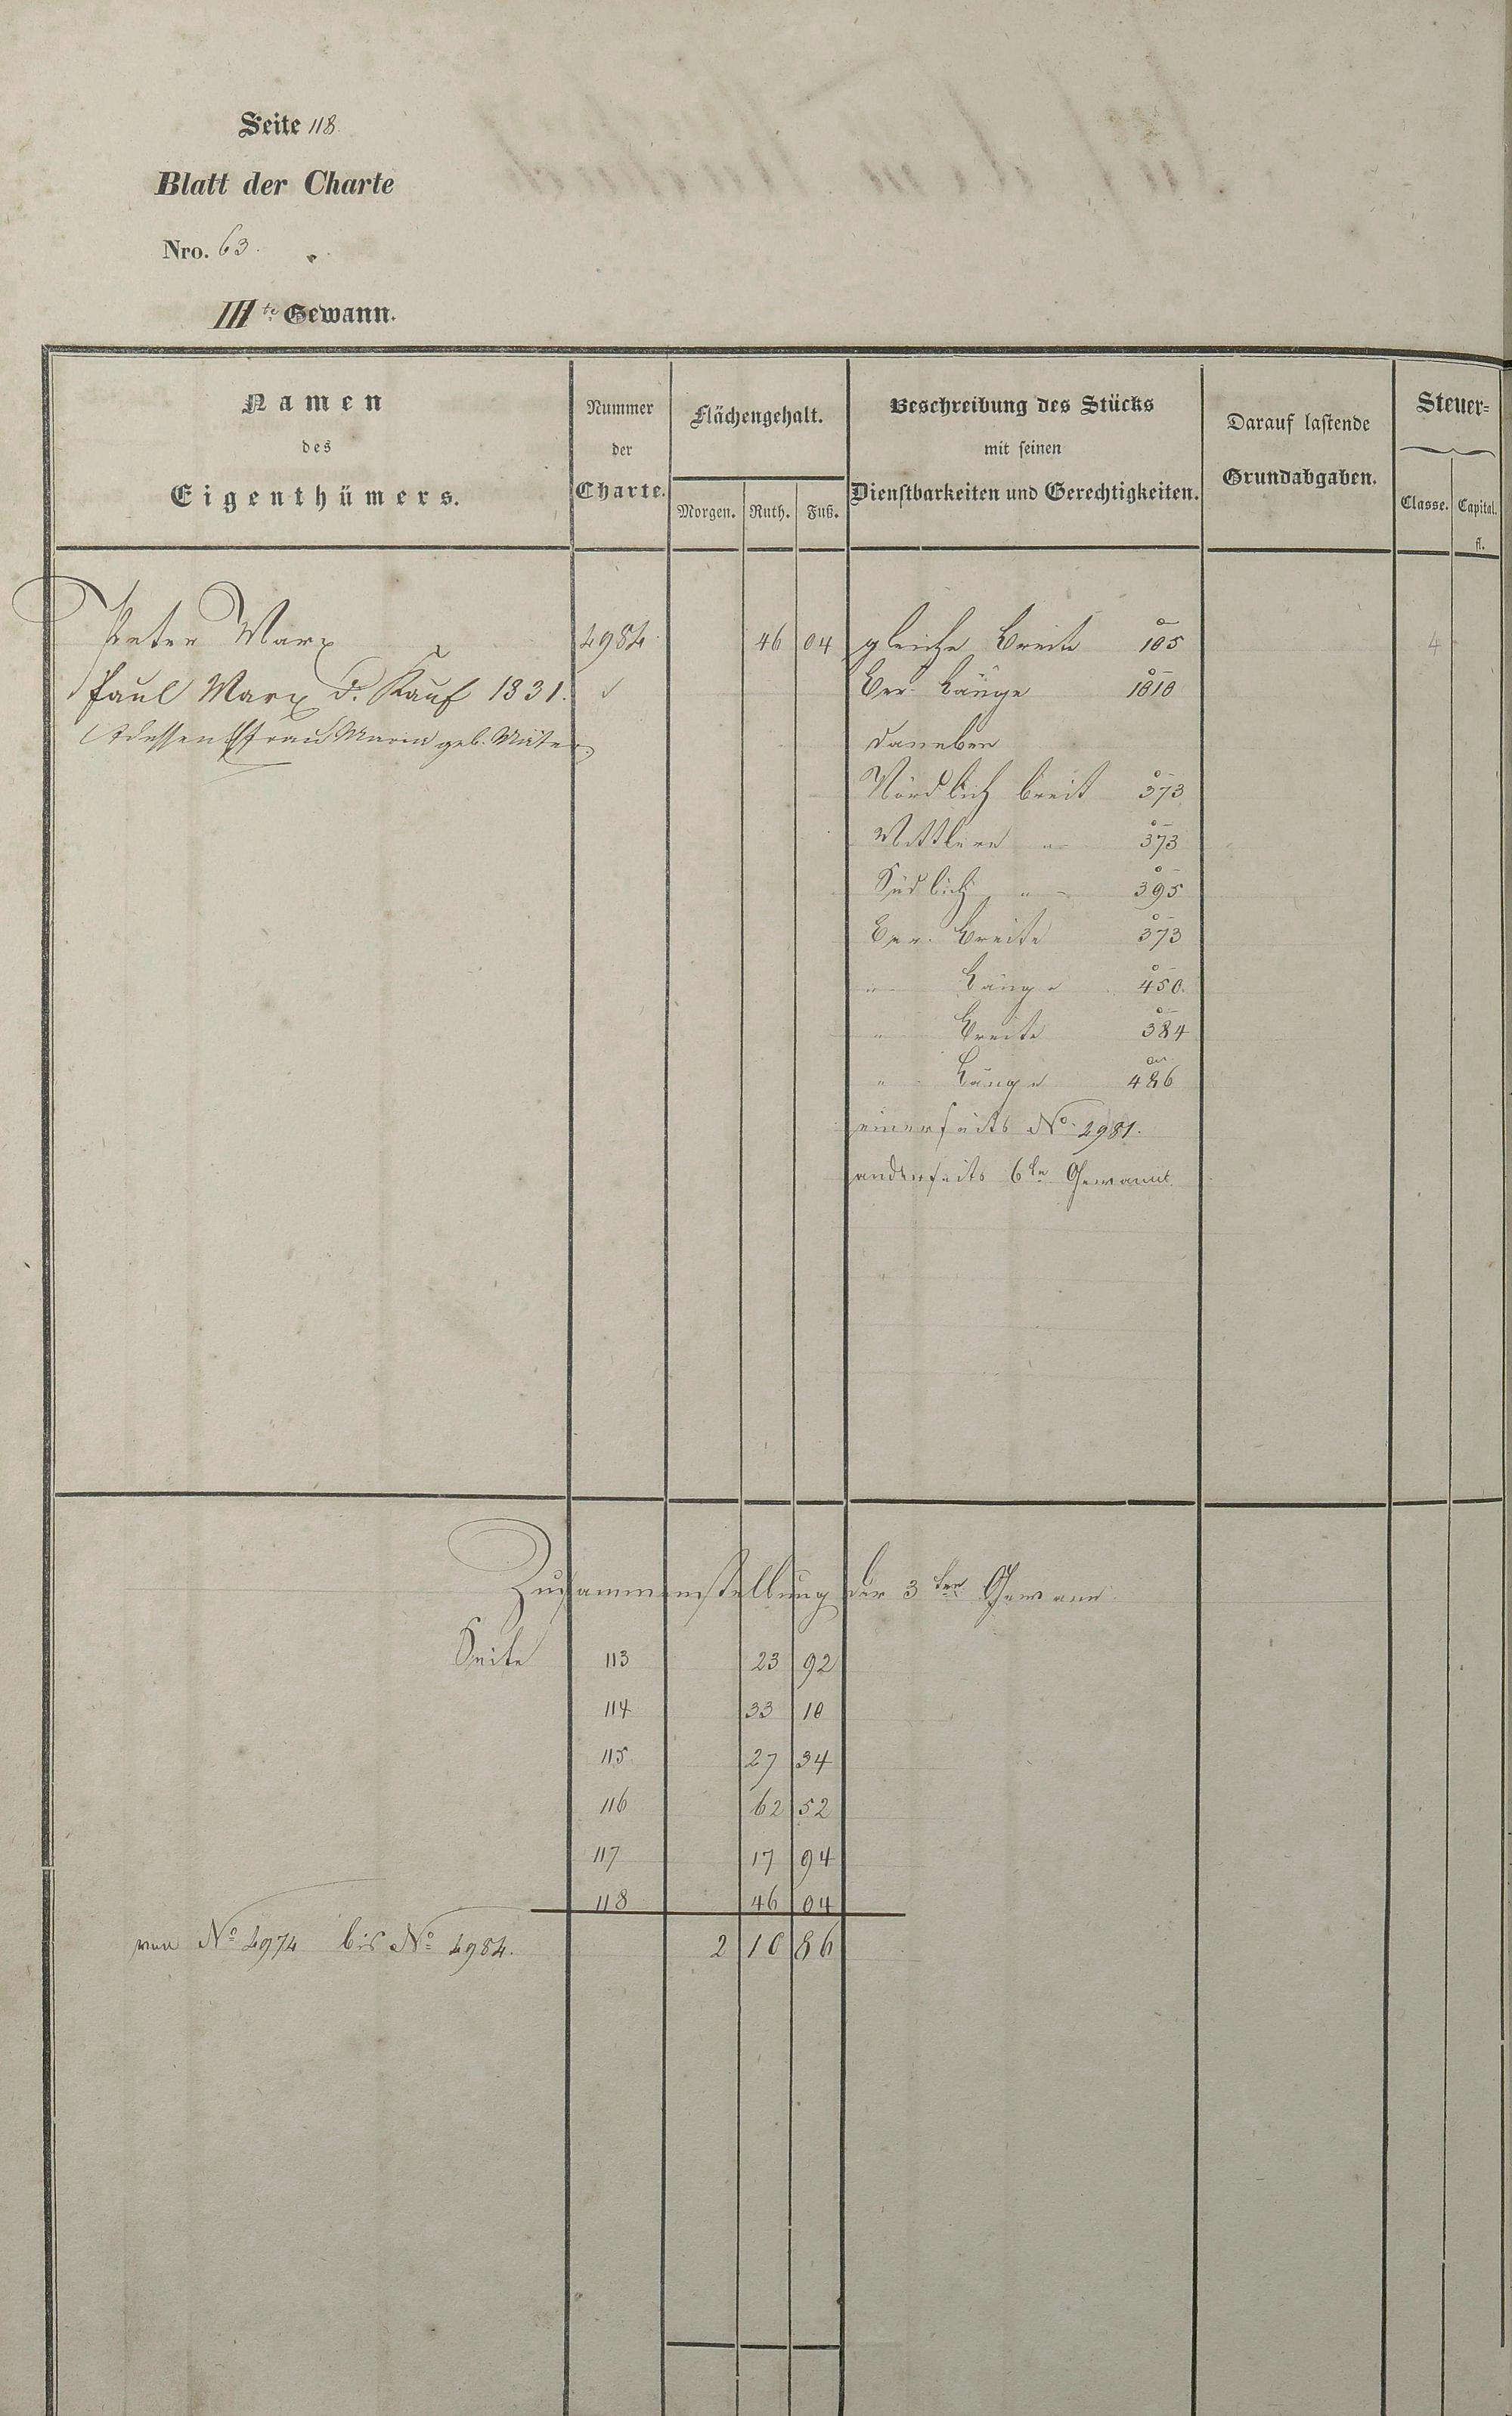 Seite 118.
Blatt der Charte
Nro. 63.
III te Gewann.
Namen
des
Eigenthümers.
Nummer
der
Charte.
Flächengehalt.
Morgen. Ruth. Fuß.
Beschreibung des Stücks
mit seinen
Dienstbarkeiten und Gerechtigkeiten.
Darauf lastende
Grundabgaben.
Steuer=
Classe. Capital.
fl.
Peter Marx 2984 46 04 gleiche Breite 105 4
Paul Marx d. Kauf 1831. Ber. Länge 1010
dessen Frau Maria geb. daneben
Nördlich breit 373
Mittlere " 373
Südlich " 395
Ber. Breite 373
" Länge 450.
" Breite 384
" Länge 486
einerseits No. 2981.
anderseits 6te Gewann
Zusammenstellung der 3ten Gewann
Seite 113 23 92
114 33 10
115 27 34
116 62 52
117 17 94
118 46 04
von No 2974 bis No 2984. 2 10 86